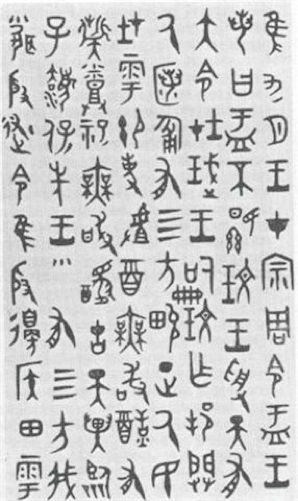 隹九月王才宗周令盂王
若曰盂不顯玟王受天有
大令在珷王嗣玟乍邦闢
氒匿匍有亖方畯正氒民
在雩御事酒無敢酖有
祀無敢古天異臨
子灋保先王有亖方我
聞殷述令隹殷邊侯田雩